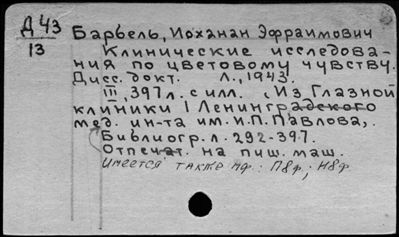 Д 43
13
Барбель, Иоханан Эфраимович
Клинические исследова-
ния по цветовому чувству.
Дисс. докт. Л., 1943.
III, 397 л. с илл. (Из Глазной
клиники I Ленинградского
мед. ин-та им. И.П. Павлова).
Библиогр. л. 292-397.
Отпечат. на пиш. маш.
Имеется также мф.: П8ф; Н8ф